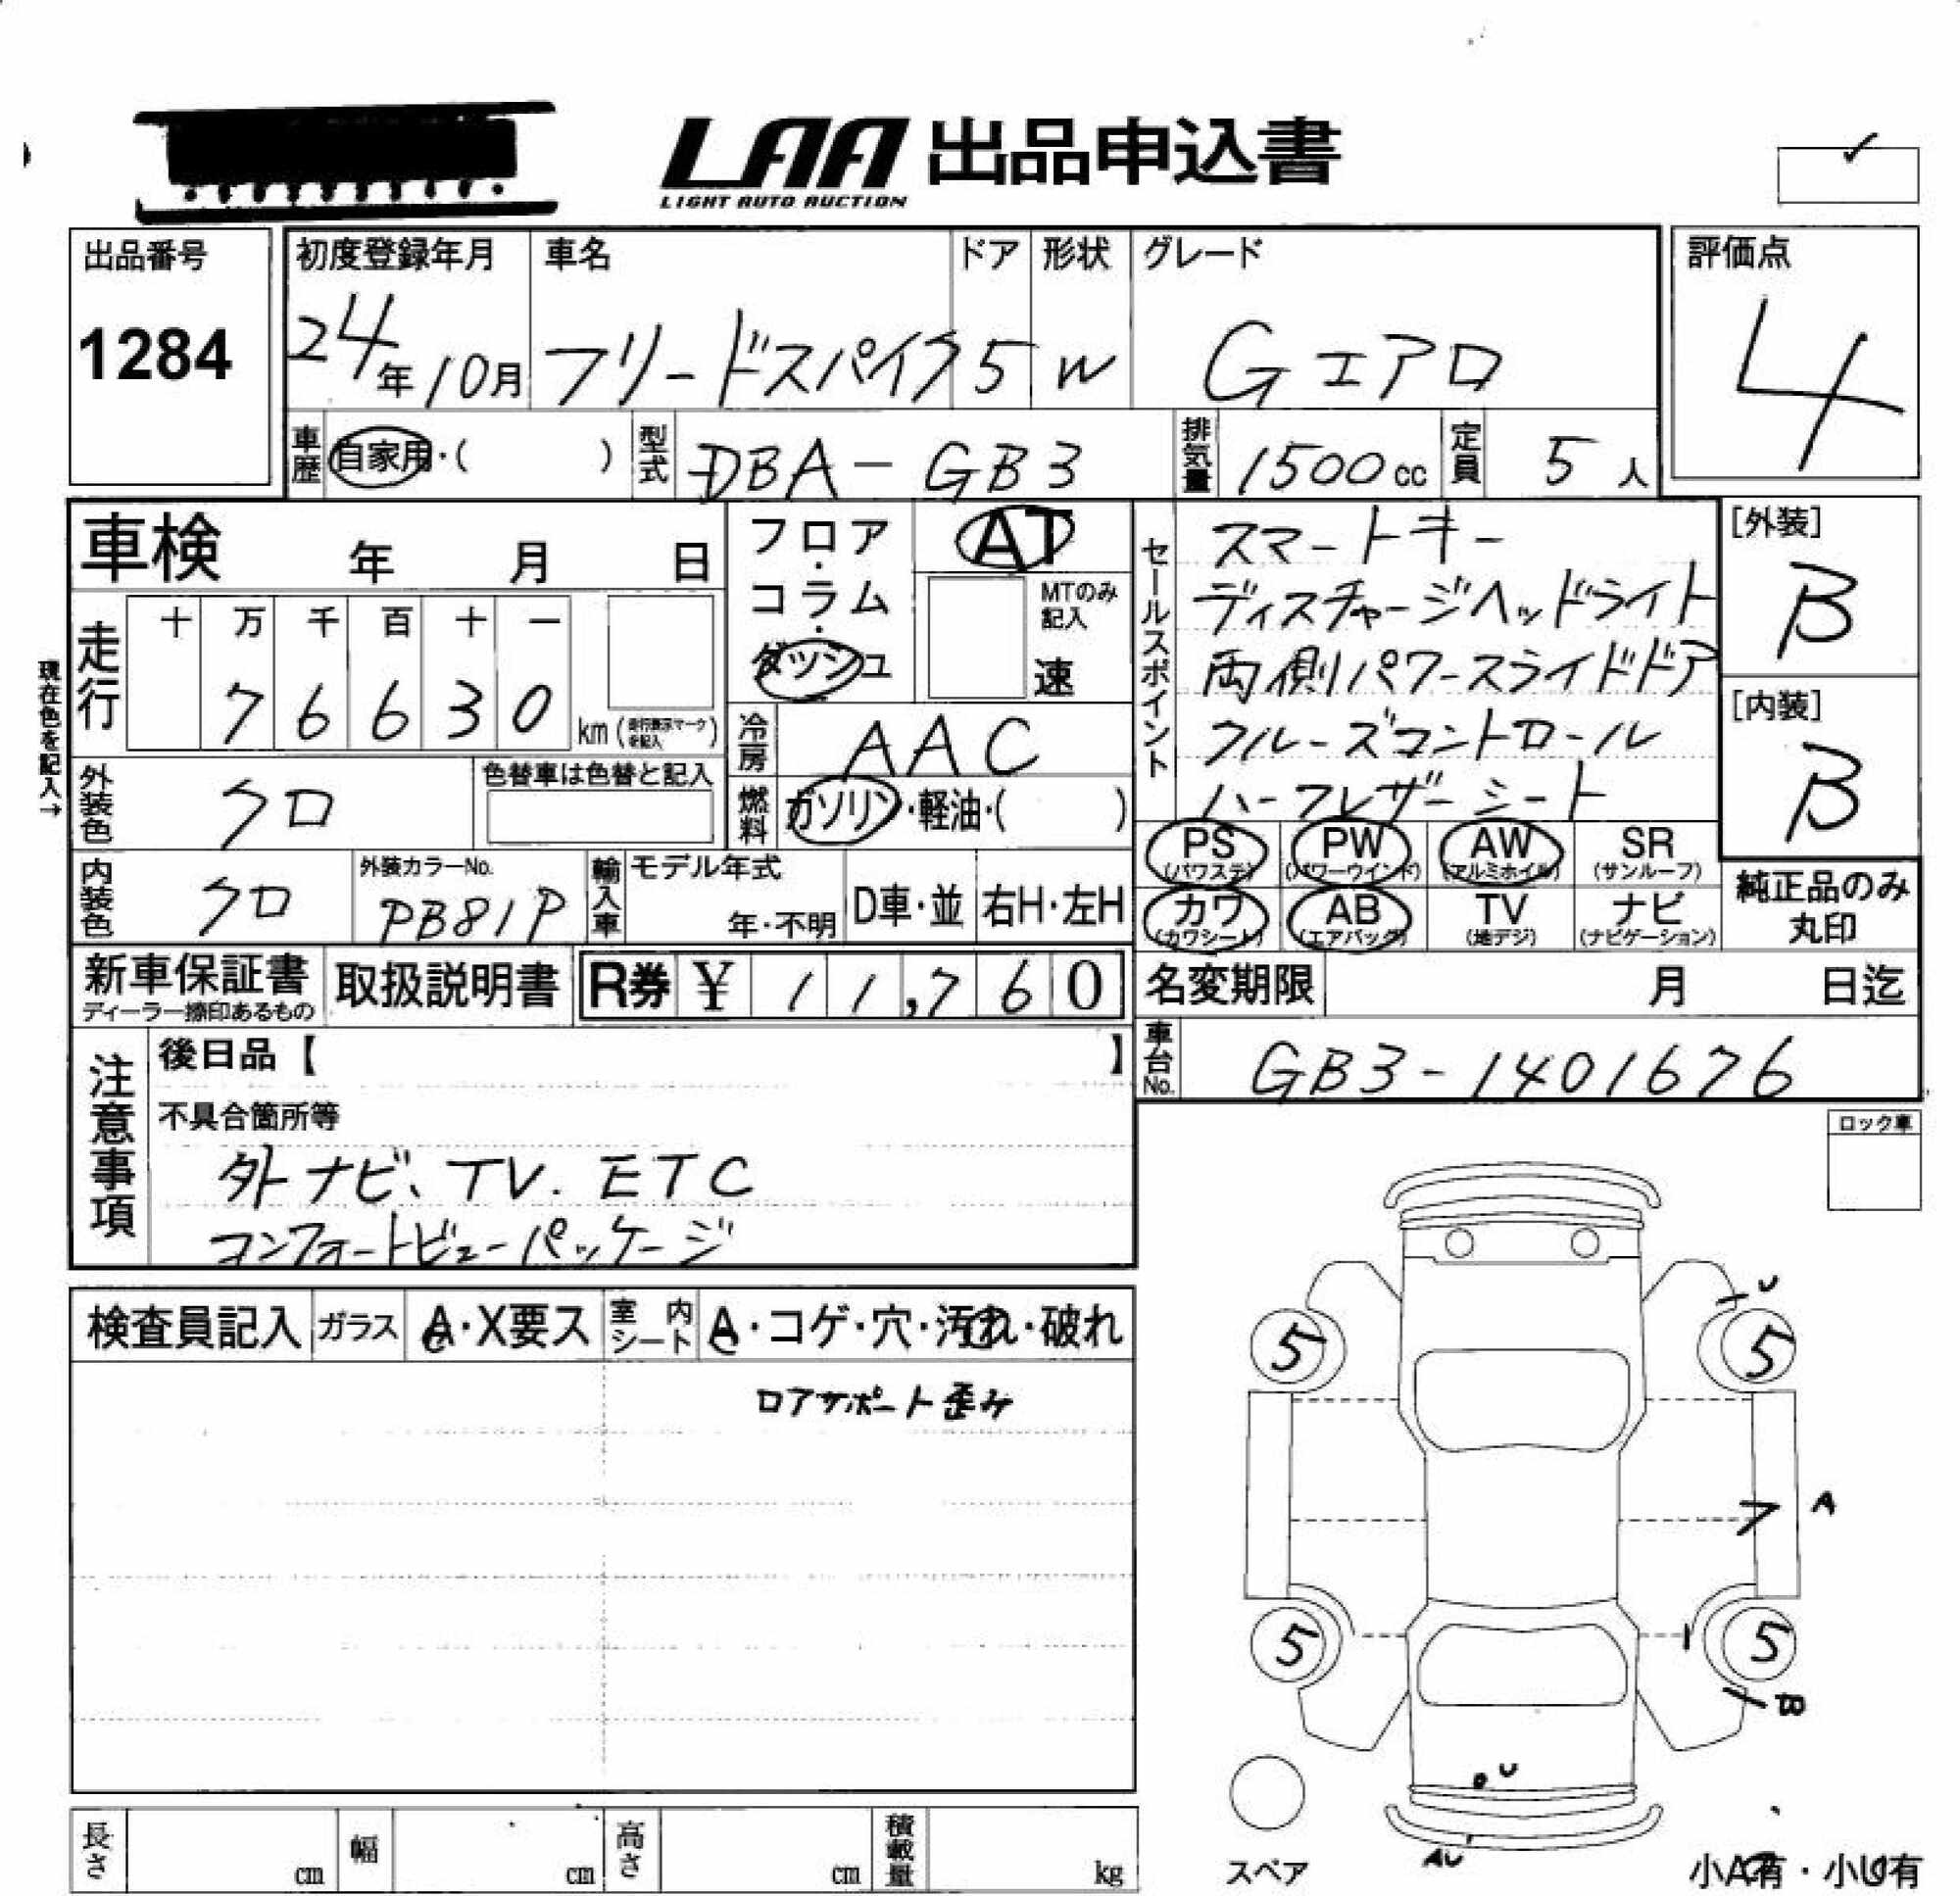 LAA 出品申込書
LIGHT AUTO AUCTION
出品番号
1284
初度登録年月
24年10月
車名
フリードスパイク
ドア
5
形状
W
グレード
Gエアロ
評価点
4
車歴 自家用・( )
型式 DBA-GB3
排気量 1500cc
定員 5人
車検 年 月 日
フロア・コラム・ダッシュ
AT
MTのみ記入
速
現在色を記入→
走行
十 万 千 百 十 一
7 6 6 3 0 km
(走行表示マークを記入)
冷房 AAC
外装色 クロ
色替車は色替と記入
燃料 ガソリン・軽油・( )
内装色 クロ
外装カラーNo.
PB81P
輸入車
モデル年式
年・不明
D車・並
右H・左H
セールスポイント
スマートキー
ディスチャージヘッドライト
両側パワースライドドア
クルーズコントロール
ハーフレザーシート
[外装]
B
[内装]
B
PS (パワステ)
PW (パワーウインド)
AW (アルミホイル)
SR (サンルーフ)
カワ (カワシート)
AB (エアバッグ)
TV (地デジ)
ナビ (ナビゲーション)
純正品のみ丸印
新車保証書
ディーラー捺印あるもの
取扱説明書
R券 ¥ 11,760
名変期限 月 日迄
車台No. GB3-1401676
注意事項
後日品【 】
不具合箇所等
外ナビ、TV.ETC
コンフォートビューパッケージ
ロック車
検査員記入
ガラス A・X要ス
室内シート A・コゲ・穴・汚れ・破れ
ロアサポート歪み
U
5 5
A
5 5
B
U
AU
スペア
小A有・小U有
長さ cm
幅 cm
高さ cm
積載量 kg